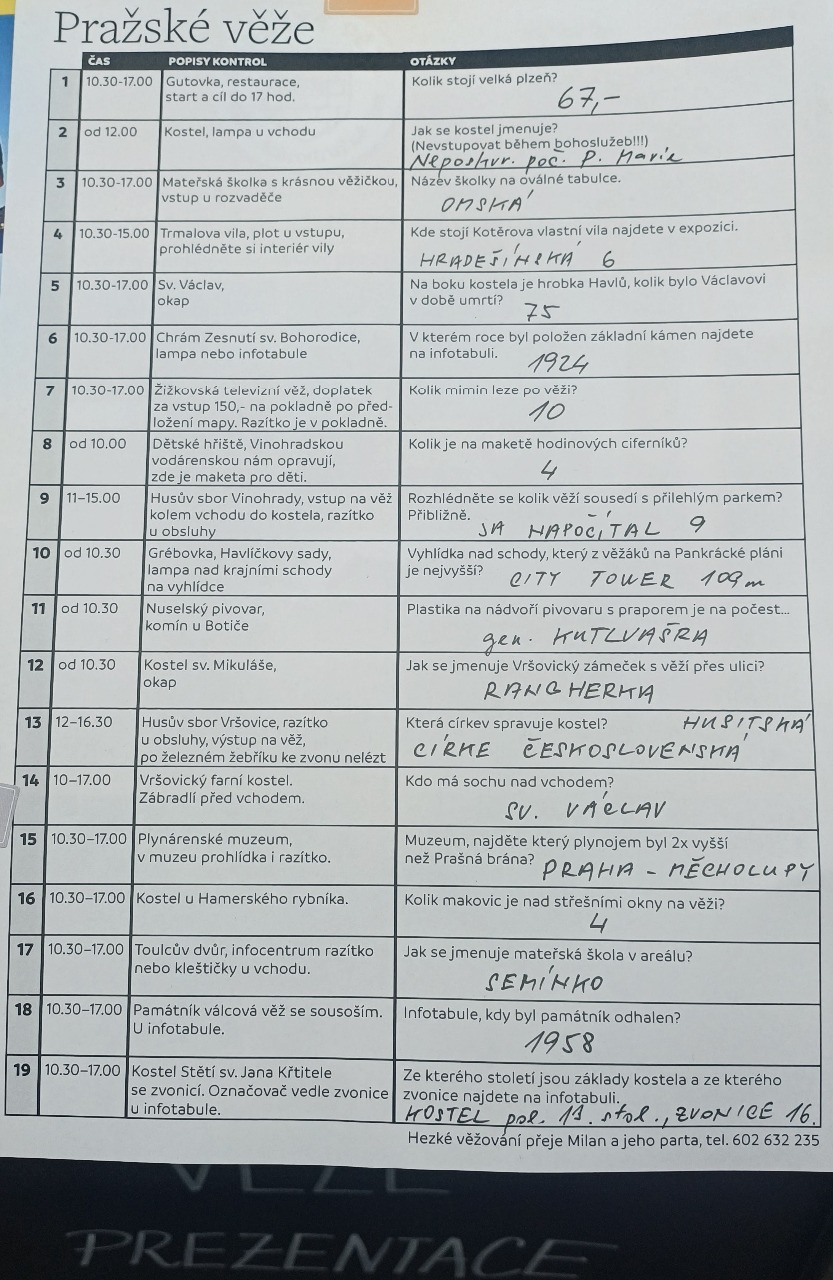 Pražské věže
ČAS POPISY KONTROL OTÁZKY
1 10.30-17.00 Gutovka, restaurace, Kolik stojí velká plzeň?
start a cíl do 17 hod. 67,-
2 od 12.00 Kostel, lampa u vchodu Jak se kostel jmenuje?
(Nevstupovat během bohoslužeb!!!)
Neposkvr. poč. P. Marie
3 10.30-17.00 Mateřská školka s krásnou věžičkou, Název školky na oválné tabulce.
vstup u rozvaděče OMSKÁ
4 10.30-15.00 Trmalova vila, plot u vstupu, Kde stojí Kotěrova vlastní vila najdete v expozici.
prohlédněte si interiér vily HRADEŠÍNSKÁ 6
5 10.30-17.00 Sv. Václav, Na boku kostela je hrobka Havlů, kolik bylo Václavovi
okap v době umrtí? 75
6 10.30-17.00 Chrám Zesnutí sv. Bohorodice, V kterém roce byl položen základní kámen najdete
lampa nebo infotabule na infotabuli. 1924
7 10.30-17.00 Žižkovská televizní věž, doplatek Kolik mimin leze po věži?
za vstup 150,- na pokladně po před- 10
ložení mapy. Razítko je v pokladně.
8 od 10.00 Dětské hřiště, Vinohradskou Kolik je na maketě hodinových ciferníků?
vodárenskou nám opravují, 4
zde je maketa pro děti.
9 11–15.00 Husův sbor Vinohrady, vstup na věž Rozhlédněte se kolik věží sousedí s přilehlým parkem?
kolem vchodu do kostela, razítko Přibližně. JÁ NAPOČÍTAL 9
u obsluhy
10 od 10.30 Grébovka, Havlíčkovy sady, Vyhlídka nad schody, který z věžáků na Pankrácké pláni
lampa nad krajními schody je nejvyšší? CITY TOWER 109m
na vyhlídce
11 od 10.30 Nuselský pivovar, Plastika na nádvoří pivovaru s praporem je na počest...
komín u Botiče gen. KUTLVAŠRA
12 od 10.30 Kostel sv. Mikuláše, Jak se jmenuje Vršovický zámeček s věží přes ulici?
okap RANGHERKA
13 12–16.30 Husův sbor Vršovice, razítko Která církev spravuje kostel? HUSITSKÁ
u obsluhy, výstup na věž, CÍRKE ČESKOSLOVENSKÁ
po železném žebříku ke zvonu nelézt
14 10–17.00 Vršovický farní kostel. Kdo má sochu nad vchodem?
Zábradlí před vchodem. SV. VÁCLAV
15 10.30–17.00 Plynárenské muzeum, Muzeum, najděte který plynojem byl 2x vyšší
v muzeu prohlídka i razítko. než Prašná brána? PRAHA - MĚCHOLUPY
16 10.30–17.00 Kostel u Hamerského rybníka. Kolik makovic je nad střešními okny na věži?
4
17 10.30–17.00 Toulcův dvůr, infocentrum razítko Jak se jmenuje mateřská škola v areálu?
nebo kleštičky u vchodu. SEMÍNKO
18 10.30–17.00 Památník válcová věž se sousoším. Infotabule, kdy byl památník odhalen?
U infotabule. 1958
19 10.30–17.00 Kostel Stětí sv. Jana Křtitele Ze kterého století jsou základy kostela a ze kterého
se zvonicí. Označovač vedle zvonice zvonice najdete na infotabuli.
u infotabule. KOSTEL pol. 11. stol., ZVONICE 16.
Hezké věžování přeje Milan a jeho parta, tel. 602 632 235
VĚŽE
PREZENTACE